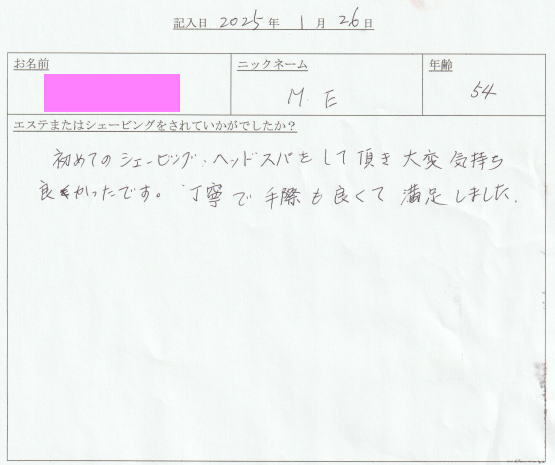 記入日 2025 年 1 月 26 日
お名前 ニックネーム 年齢
M. E 54
エステまたはシェービングをされていかがでしたか?
初めてのシェービング、ヘッドスパをして頂き大変気持ち
良かったです。丁寧で手際も良くて満足しました.